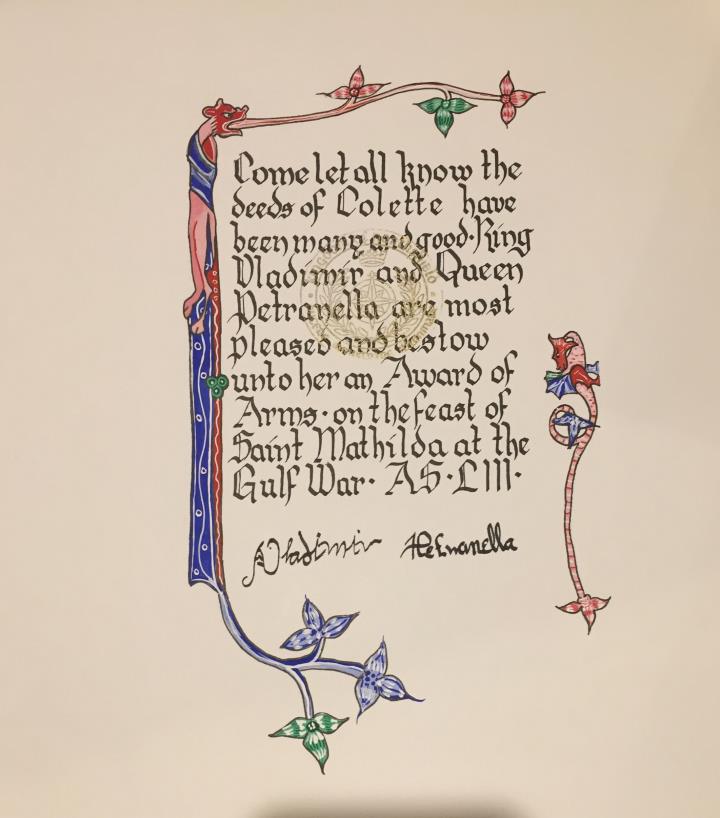 Come let all know the
deeds of Colette have
been many and good·King
Vladimir and Queen
Petranella are most
pleased and bestow
unto her an Award of
Arms· on the feast of
Saint Mathilda at the
Gulf War· AS·LIII·
Vladimir Petranella